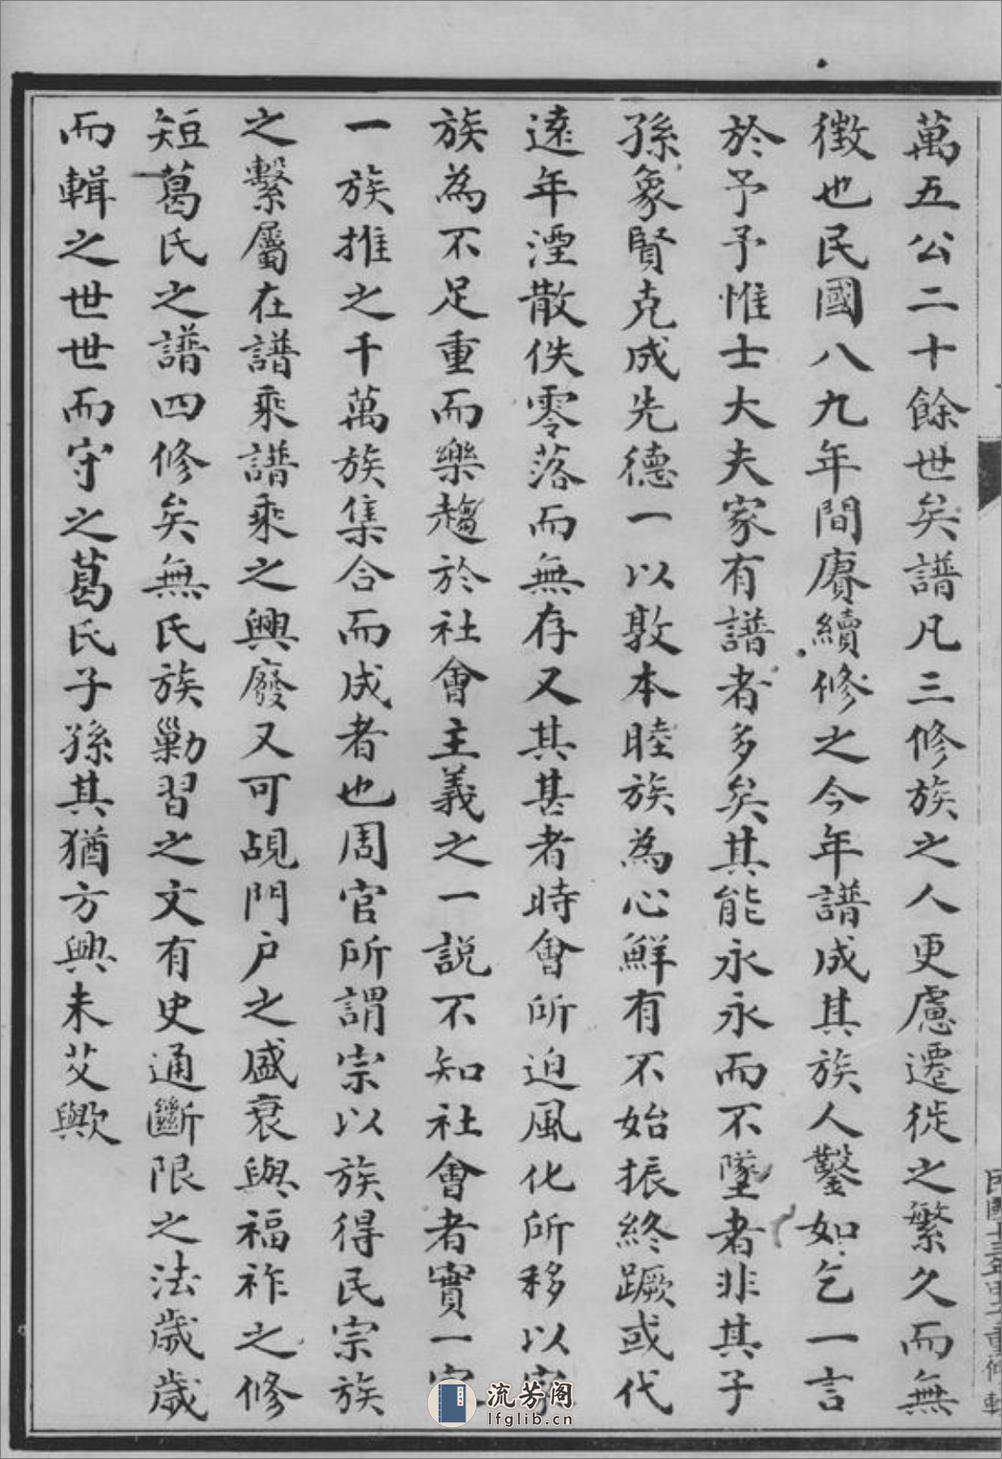 萬五公二十餘世矣譜凡三修族之人更慮遷徙之繁久而無
徵也民國八九年間賡續修之今年譜成其族人鑿如乞一言
於予予惟士大夫家有譜者多矣其能永永而不墜者非其子
孫象賢克成先德一以敦本睦族為心鮮有不始振終蹶或代
遠年湮散佚零落而無存又其甚者時會所迫風化所移以家
族為不足重而樂趨於社會主義之一說不知社會者實一家
一族推之千萬族集合而成者也周官所謂宗以族得民宗族
之繫屬在譜乘譜乘之興廢又可覘門户之盛衰與福祚之修
短葛氏之譜四修矣無氏族勦習之文有史通斷限之法歲歲
而輯之世世而守之葛氏子孫其猶方興未艾歟
流芳阁
lfglib.cn